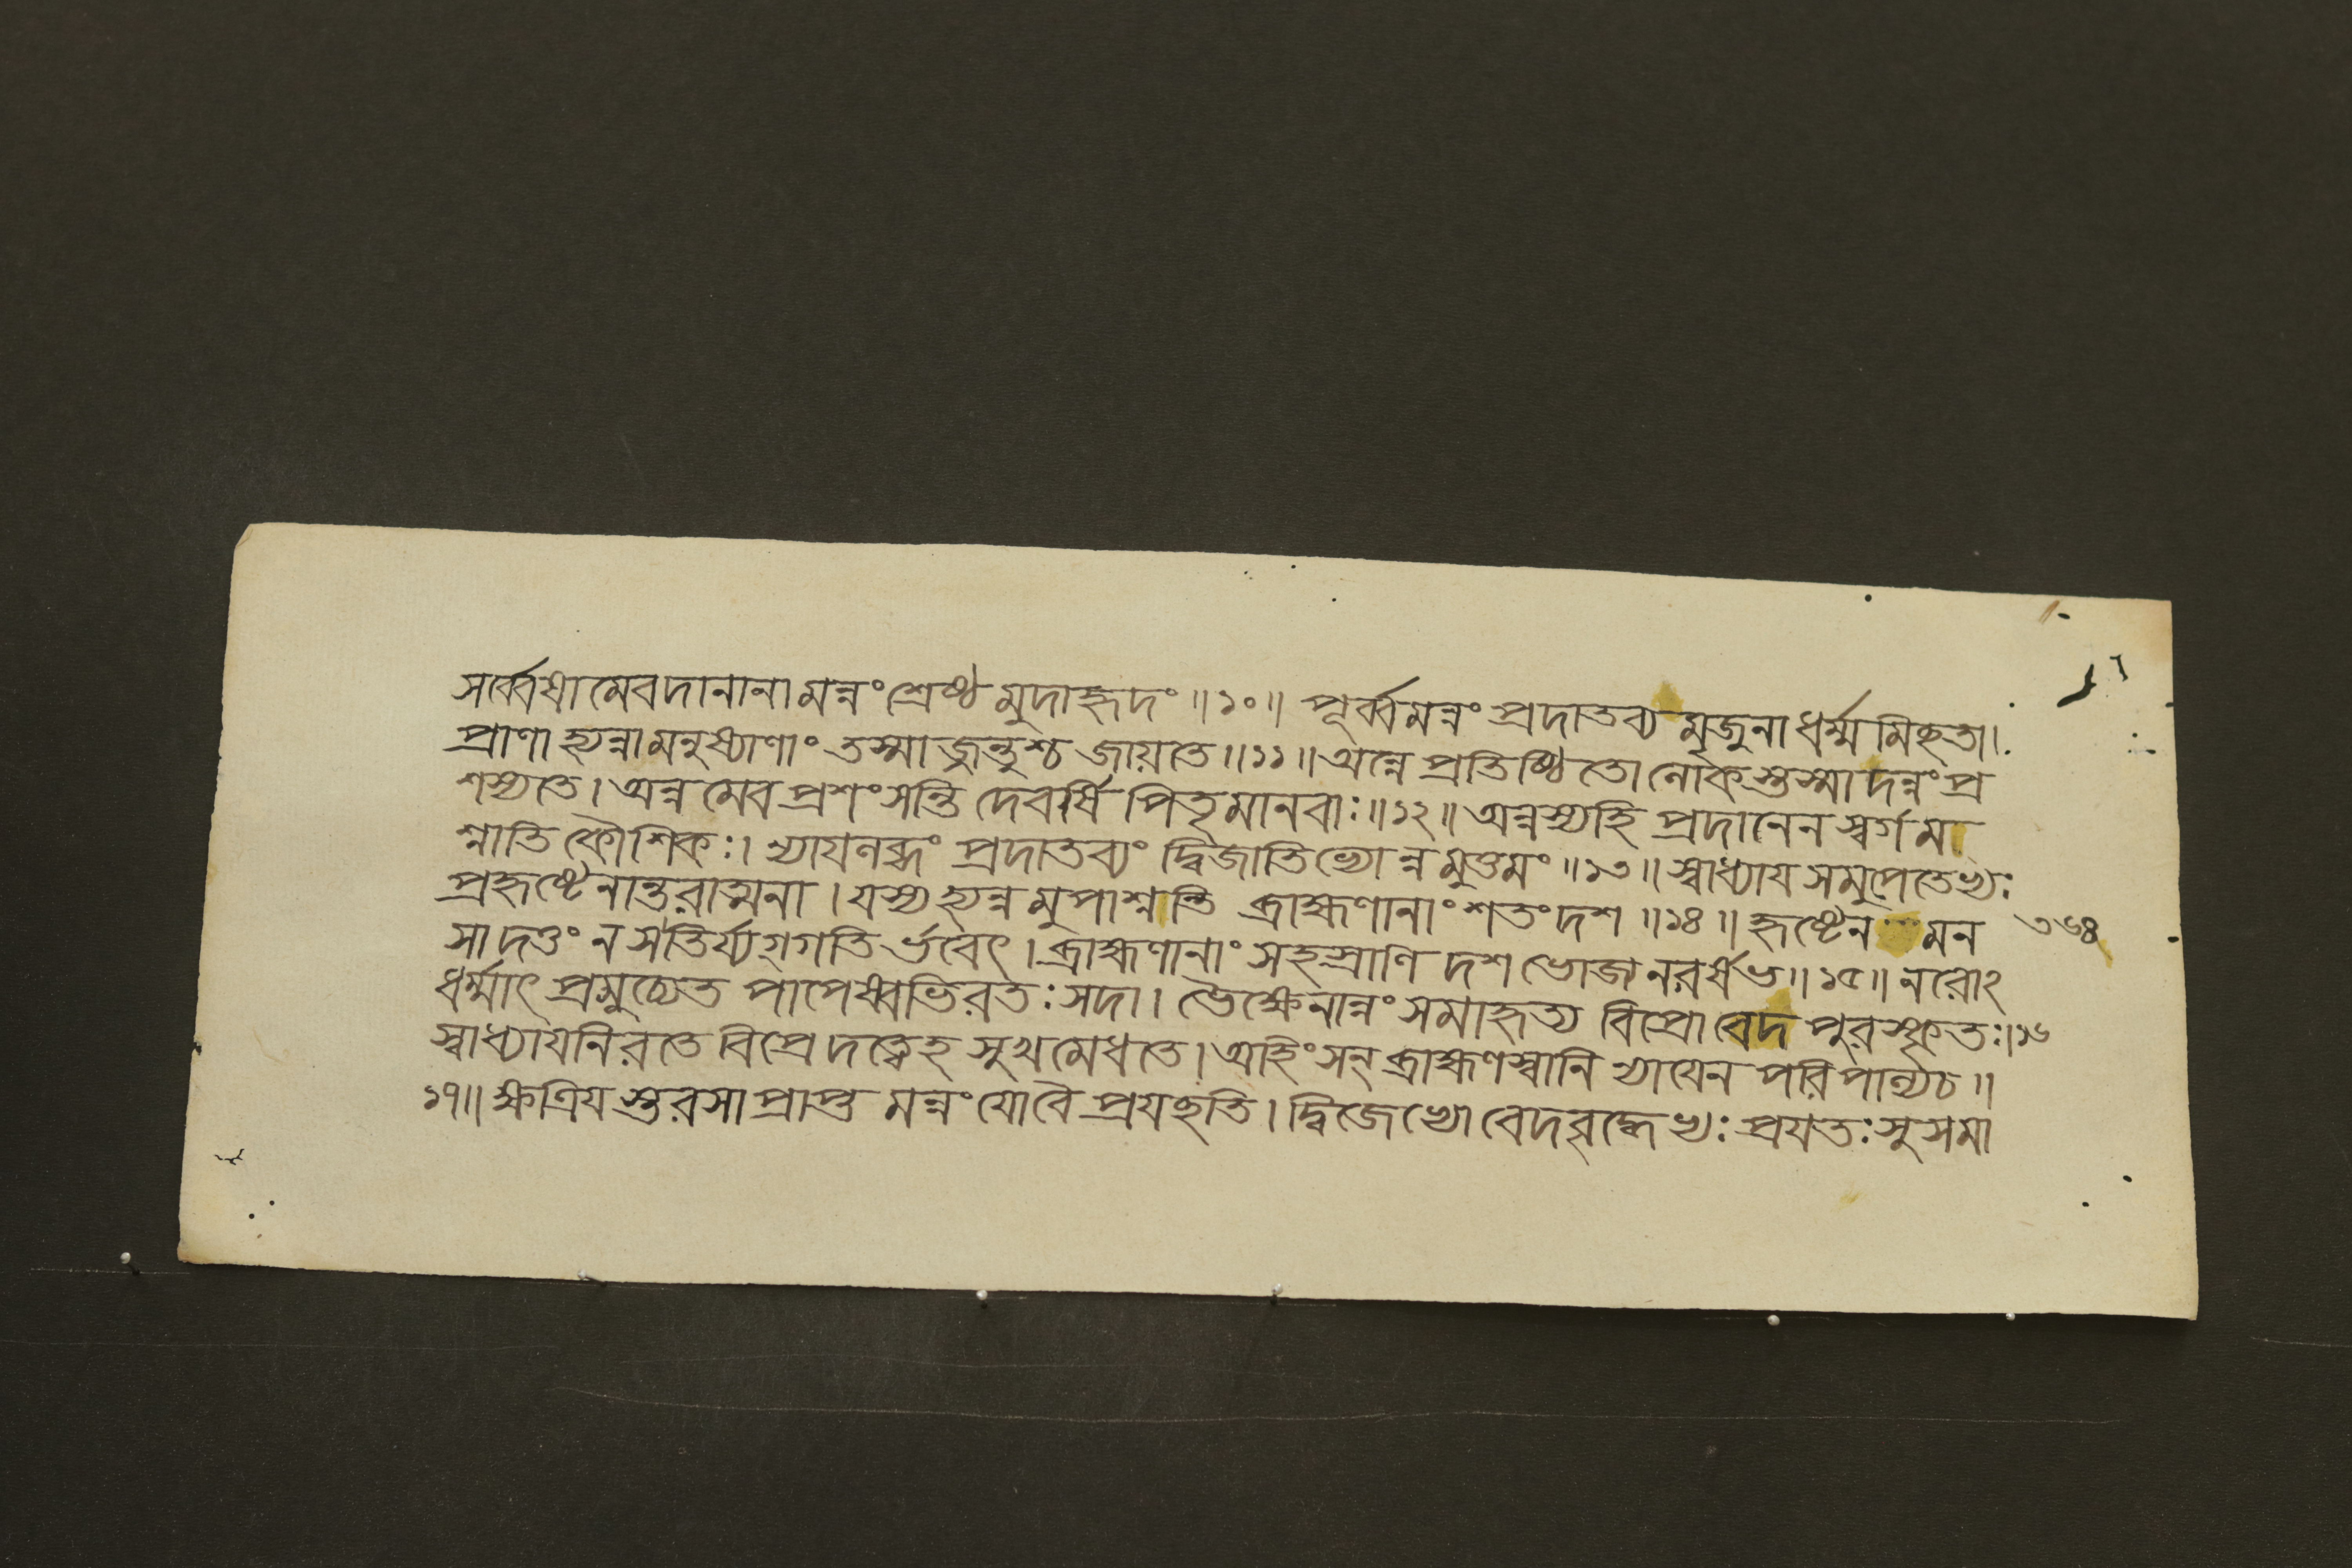 সর্ব্বেষামেবদানানামন্নংশ্রেষ্ঠমুদাহৃদং॥১০॥ পূর্ব্বমন্নংপ্রদাতব্যমৃজুনাধর্ম্মমিছতা।
প্রাণাহ্যন্নামনুষ্যাণাং তস্মাজ্জন্তুশ্চ জায়তে॥১১॥অন্নেপ্রতিষ্ঠিতো লোকস্তস্মাদন্নংপ্র
শস্যতে।অন্নমেবপ্রশংসন্তি দেবর্ষিপিতৃমানবাঃ॥১২॥অন্নস্যহি প্রদানেন স্বর্গমা
শ্নাতি কৌশিকঃ। ন্যায়লব্ধং প্রদাতব্যং দ্বিজাতিভ্যোন্নমুত্তমং॥১৩॥স্বাধ্যায়সমুপেতেভ্যঃ
প্রহৃষ্টেনান্তরাত্মনা।যস্যহ্যন্নমুপাশ্নন্তি ব্রাহ্মণানাংশতংদশ॥১৪॥হৃষ্টেন মন ৩৬৪
সাদত্তং ন সতির্য্যগ্গতির্ভবেৎ।ব্রাহ্মণানাং সহস্রাণি দশভোজ্যনরর্ষভ॥১৫॥নরোঽ
ধর্ম্মাৎপ্রমুচ্যেত পাপেষ্বভিরতঃসদা। ভৈক্ষেনান্নংসমাহৃত্য বিপ্রোবেদপুরস্কৃতঃ।১৬
স্বাধ্যায়নিরতে বিপ্রেদত্ত্বেহ সুখমেধতে।অহিংসন্ব্রাহ্মণস্বানি ন্যায়েন পরিপাল্যচ॥
১৭॥ক্ষত্রিয়স্তরসাপ্রাপ্ত মন্নংযোবৈপ্রযছতি।দ্বিজেভ্যোবেদবৃদ্ধেভ্যঃপ্রযতঃসুসমা